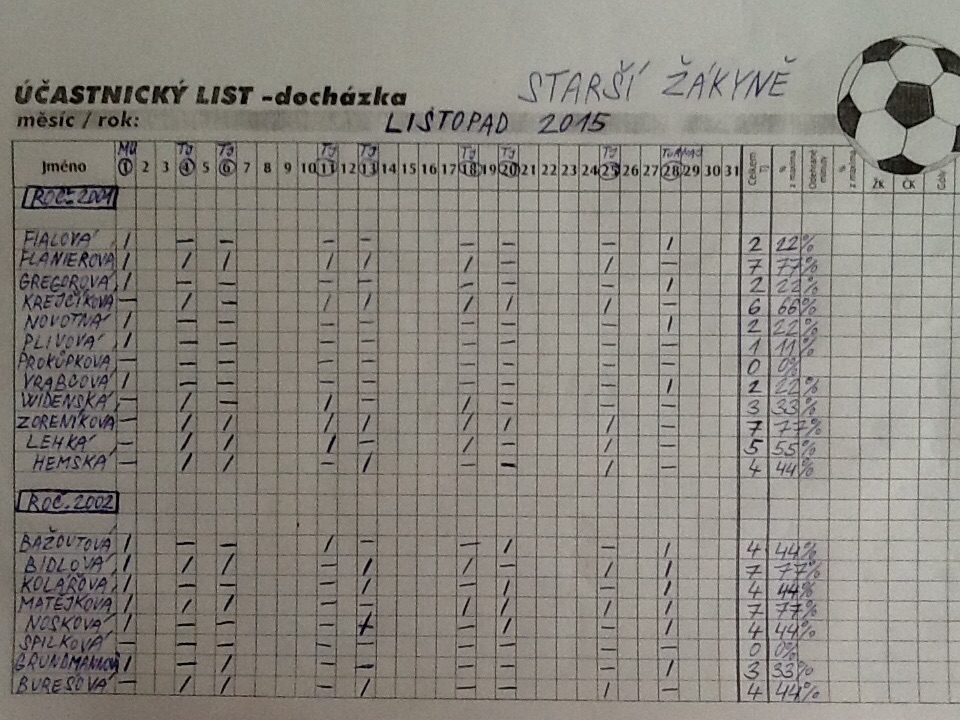 STARŠÍ ŽÁKYNĚ
ÚČASTNICKÝ LIST -docházka
měsíc / rok: LISTOPAD 2015
MU TJ TJ TJ TJ TJ TJ TJ TURNAJ
Jméno 1 2 3 4 5 6 7 8 9 10 11 12 13 14 15 16 17 18 19 20 21 22 23 24 25 26 27 28 29 30 31 Celkem TJ % z maxima Odehrané minuty % z maxima ŽK ČK Góly
ROČ. 2001
FIALOVÁ / — — — — — — — / 2 22%
FLANIEROVÁ / / / / / / — / — 7 77%
GREGOROVÁ / — — — — — — — / 2 22%
KREJČÍKOVÁ — / — / / / / / — 6 66%
NOVOTNÁ / — — — — — — — / 2 22%
PLIVOVÁ / — — — — — — — — 1 11%
PROKŮPKOVÁ — — — — — — — — — 0 0%
VRABCOVÁ / — — — — — — — / 2 22%
WIDENSKÁ — / — / — / — — — 3 33%
ZORENÍKOVÁ — / / / / / / / — 7 77%
LEHKÁ — / / / — / — / — 5 55%
HEMSKÁ — / / — / — — / — 4 44%
ROČ. 2002
BAŽOUTOVÁ / — — / — — / — / 4 44%
BIDLOVÁ / / / — / — / / / 7 77%
KOLÁŘOVÁ / — — — / — / — / 4 44%
MATĚJKOVÁ / / / — / / / / — 7 77%
NOSKOVÁ / — — — / — / — / 4 44%
SPILKOVÁ — — — — — — — — — 0 0%
GRUNDMANNOVÁ / — / — — — — — / 3 33%
BUREŠOVÁ — / / — / — — / — 4 44%